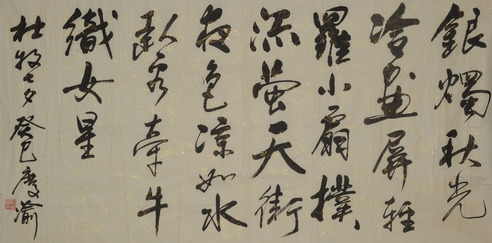 銀燭秋光
冷畫屏輕
羅小扇撲
流螢天街
夜色涼如水
臥看牽牛
織女星
杜牧七夕 癸巳